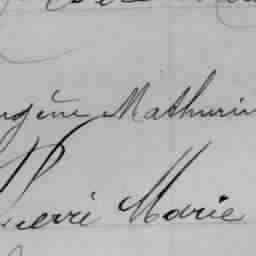 ugène Mathurin
Pierre Marie